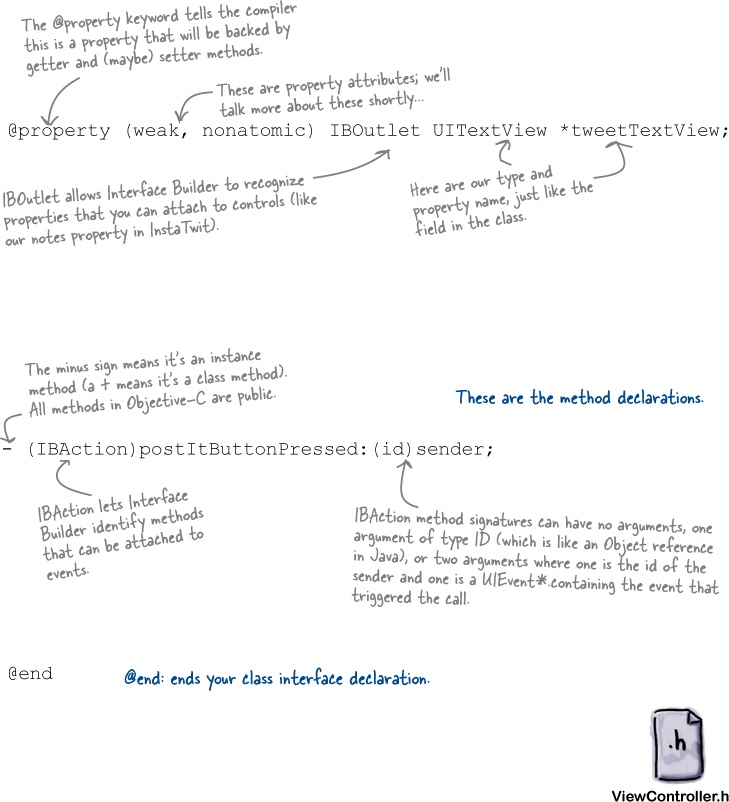 The @property keyword tells the compiler
this is a property that will be backed by
getter and (maybe) setter methods.
These are property attributes; we'll
talk more about these shortly...
@property (weak, nonatomic) IBOutlet UITextView *tweetTextView;
IBOutlet allows Interface Builder to recognize
properties that you can attach to controls (like
our notes property in InstaTwit).
Here are our type and
property name, just like the
field in the class.
The minus sign means it's an instance
method (a + means it's a class method).
All methods in Objective-C are public.
These are the method declarations.
- (IBAction)postItButtonPressed:(id)sender;
IBAction lets Interface
Builder identify methods
that can be attached to
events.
IBAction method signatures can have no arguments, one
argument of type ID (which is like an Object reference
in Java), or two arguments where one is the id of the
sender and one is a UIEvent*.containing the event that
triggered the call.
@end
@end: ends your class interface declaration.
.h
ViewController.h